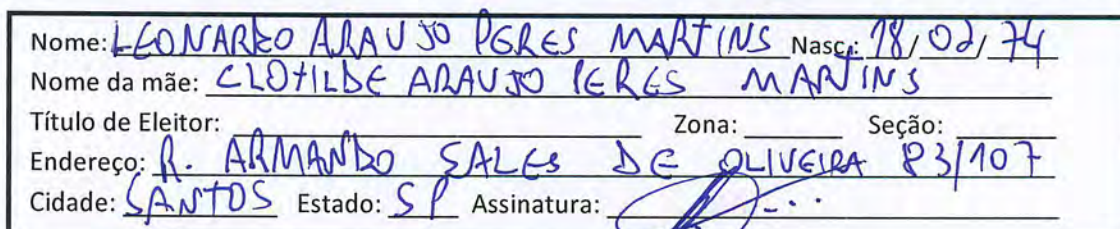 Nome: LEONARDO ARAUJO PERES MARTINS Nasc.: 18/02/74
Nome da mãe: CLOTILDE ARAUJO PERES MARTINS
Título de Eleitor: Zona: Seção:
Endereço: R. ARMANDO SALES DE OLIVEIRA 83/107
Cidade: SANTOS Estado: SP Assinatura: